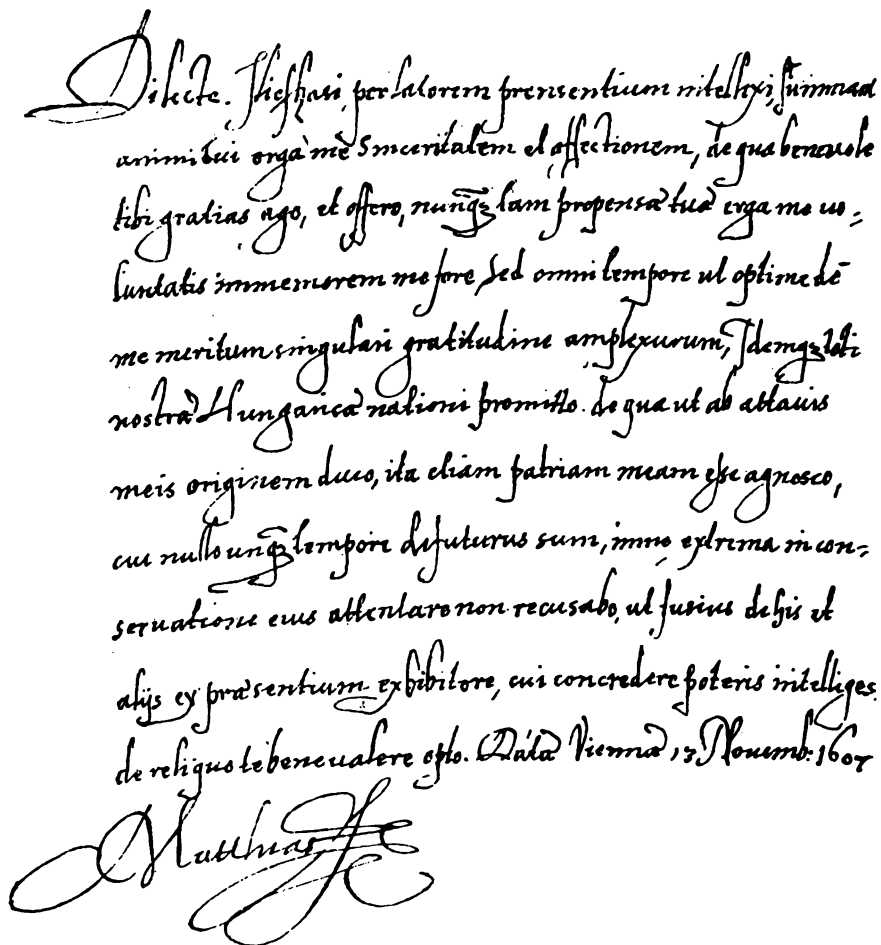 Dilecte. Illieshasi, per latorem prensentium intellexi, summam
animi tui erga mē Sinceritatem et affectionem, de qua beneuole
tibi gratias ago, et offero, nunq̄ȝ tam propensæ tuæ erga me uo-
luntatis immemorem me fore, sed omni tempore ut optime de
me meritum singulari gratitudine amplexurum, Idemqȝ toti
nostræ Hungaricæ nationi promitto. de qua ut ab attauis
meis originem duco, ita etiam patriam meam esse agnosco,
cui nullo unq̄ȝ tempore defuturus sum, immo extrema in con-
seruatione eius attentare non recusabo, ut fusius de his et
alijs ex præsentium exhibitore, cui concredere poteris intelliges.
de reliquo te bene ualere opto. Datæ Viennæ 13 Nouemb: 1607
Matthias